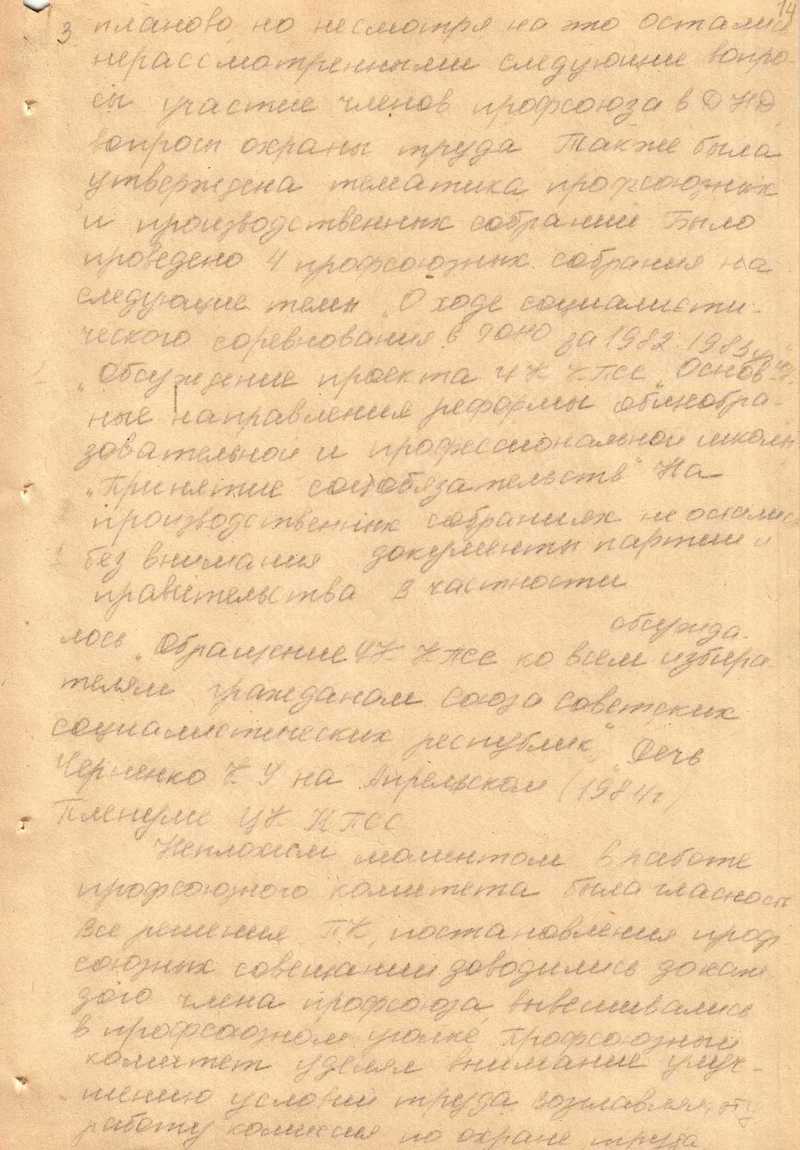 14
3 планово, но несмотря на это остались
нерассмотренными следующие вопро-
сы участие членов профсоюза в ДНД,
вопросы охраны труда Также была
утверждена тематика профсоюзных
и производственных собраний Было
проведено 4 профсоюзных собрания на
следующие темы „О ходе социалисти-
ческого соревнования в за 1982-1983
„Обсуждение проекта ЦК КПСС „Основ-
ные направления реформы общеобра-
зовательной и профессиональной школы
„Принятие соцобязательств" На
производственных собраниях не остались
без внимания документы партии и
правительства В частности
обсужда-
лось „Обращение ЦК КПСС ко всем избира
телям гражданам союза советских
социалистических республик", Речь
Черненко К У на Апрельском (1984г)
Пленуме ЦК КПСС
Неплохим моментом в работе
профсоюзного комитета была гласность
Все решения ПК, постановления проф
союзных совещаний доводились до каж
дого члена профсоюза вывешивались
в профсоюзном уголке Профсоюзный
комитет уделял внимание улуч-
шению условий труда возглавляя эту
работу комиссия по охране труда